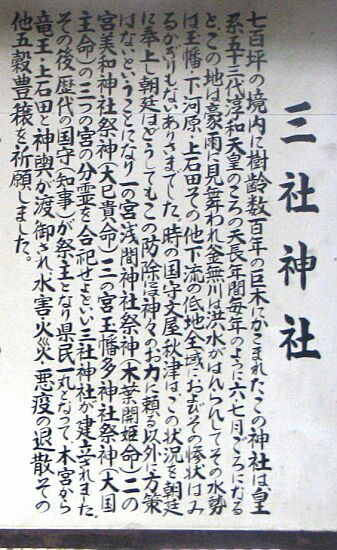 三社神社
七百坪の境内に樹齢数百年の巨木にかこまれたこの神社は皇
系五十三代淳和天皇のころの天長年間毎年のように六七月ごろになる
とこの地は豪雨に見舞われ釜無川は洪水がはんらんしてその水勢
は玉幡・下河原・上石田その他下流の低地全域におよびその惨状はみ
るかぎりもないありさまでした。時の国守文屋秋津はこの状況を朝廷
に奉上し朝廷はどうしてもこの防除は神々のお力に頼る以外に方策
はないということになり一の宮浅間神社祭神(木華開姫命)二の
宮美和神社祭神(大巳貴命)三の宮玉幡多神社祭神(大国
主命)の三つの宮の分霊を合祀せよといい三社神社が建立されました
その後歴代の国守(知事)が祭主となり県民一丸となって、木宮から
竜王・上石田と神輿が渡御され水害・火災・悪疫の退散その
他五穀豊穣を祈願しました。